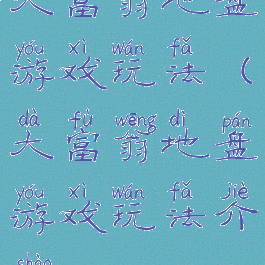 大富翁地盘
yóu xì wán fǎ
游戏玩法（
dà fù wēng dì pán
大富翁地盘
yóu xì wán fǎ jiè
游戏玩法介
shào